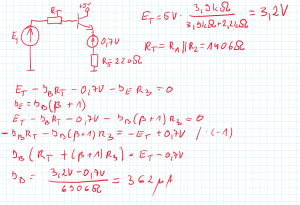 +5V
R_T
E_T
0,7V
R_3=220Ω
E_T = 5V · 3,9kΩ / 3,9kΩ+2,2kΩ = 3,2V
R_T = R_1 || R_2 = 1406Ω
E_T - I_B R_T - 0,7V - I_E R_3 = 0
I_E = I_B (β + 1)
E_T - I_B R_T - 0,7V - I_B (β+1) R_3 = 0
- I_B R_T - I_B (β+1) R_3 = -E_T + 0,7V / · (-1)
I_B (R_T + (β+1) R_3) = E_T - 0,7V
I_B = 3,2V - 0,7V / 6906Ω = 362 μA